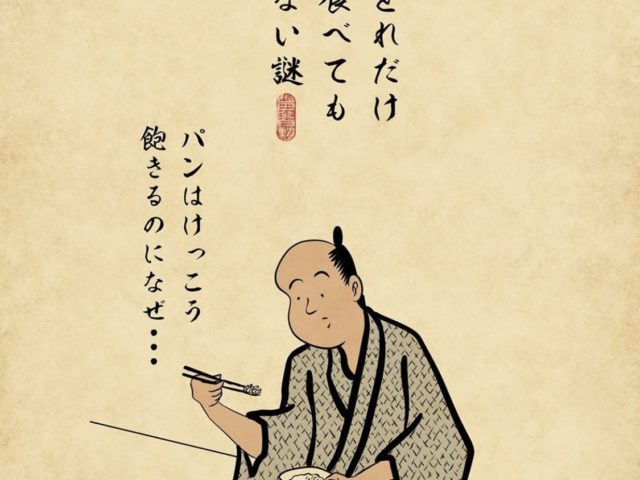 どれだけ
食べても
ない謎
パンはけっこう
飽きるのになぜ・・・